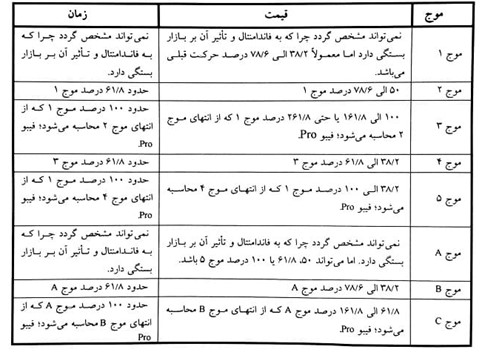 موج
قیمت
زمان
موج ۱
نمی‌تواند مشخص گردد چرا که به فاندامنتال و تأثیر آن بر بازار
بستگی دارد اما معمولاً ۳۸/۲ الی ۷۸/۶ درصد حرکت قبلی
می‌باشد.
نمی‌تواند مشخص گردد چرا که
به فاندامنتال و تأثیر آن بر بازار
بستگی دارد.
موج ۲
۵۰ الی ۷۸/۶ درصد موج ۱
حدود ۶۱/۸ درصد موج ۱
موج ۳
۱۰۰ الی ۱۶۱/۸ یا حتی ۲۶۱/۸ درصد موج ۱ که از انتهای موج
۲ محاسبه می‌شود؛ فیبو Pro.
حدود ۱۰۰ درصد موج ۱ که از
انتهای موج ۲ محاسبه می‌شود؛ فیبو
Pro.
موج ۴
۳۸/۲ الی ۶۱/۸ درصد موج ۳
حدود ۶۱/۸ درصد موج ۳
موج ۵
۳۸/۲ الی ۱۰۰ درصد موج ۱ که از انتهای موج ۴ محاسبه
می‌شود؛ فیبو Pro.
حدود ۱۰۰ درصد موج ۱ که از
انتهای موج ۴ محاسبه می‌شود؛ فیبو
Pro.
موج A
نمی‌تواند مشخص گردد چرا که به فاندامنتال و تأثیر آن بر بازار
بستگی دارد. اما می‌تواند ۵۰، ۶۱/۸ یا ۱۰۰ درصد موج ۵ باشد.
نمی‌تواند مشخص گردد چرا که
به فاندامنتال و تأثیر آن بر بازار
بستگی دارد.
موج B
۳۸/۲ الی ۷۸/۶ درصد A
حدود ۶۱/۸ درصد A
موج C
۶۱/۸ الی ۱۶۱/۸ درصد موج A که از انتهای موج B محاسبه
می‌شود؛ فیبو Pro.
حدود ۱۰۰ درصد موج A که از
انتهای موج B محاسبه می‌شود؛ فیبو
Pro